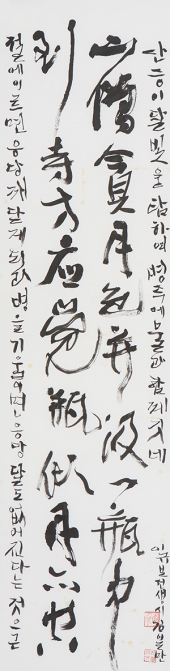 산승이달빛을탐하여병속에물과함께긷네
山僧貪月色幷汲一瓶中
到寺方應覺瓶傾月亦空
절에이르면응당깨달게되리라병을기울이면응당달도없어진다는것을
이규보선생시